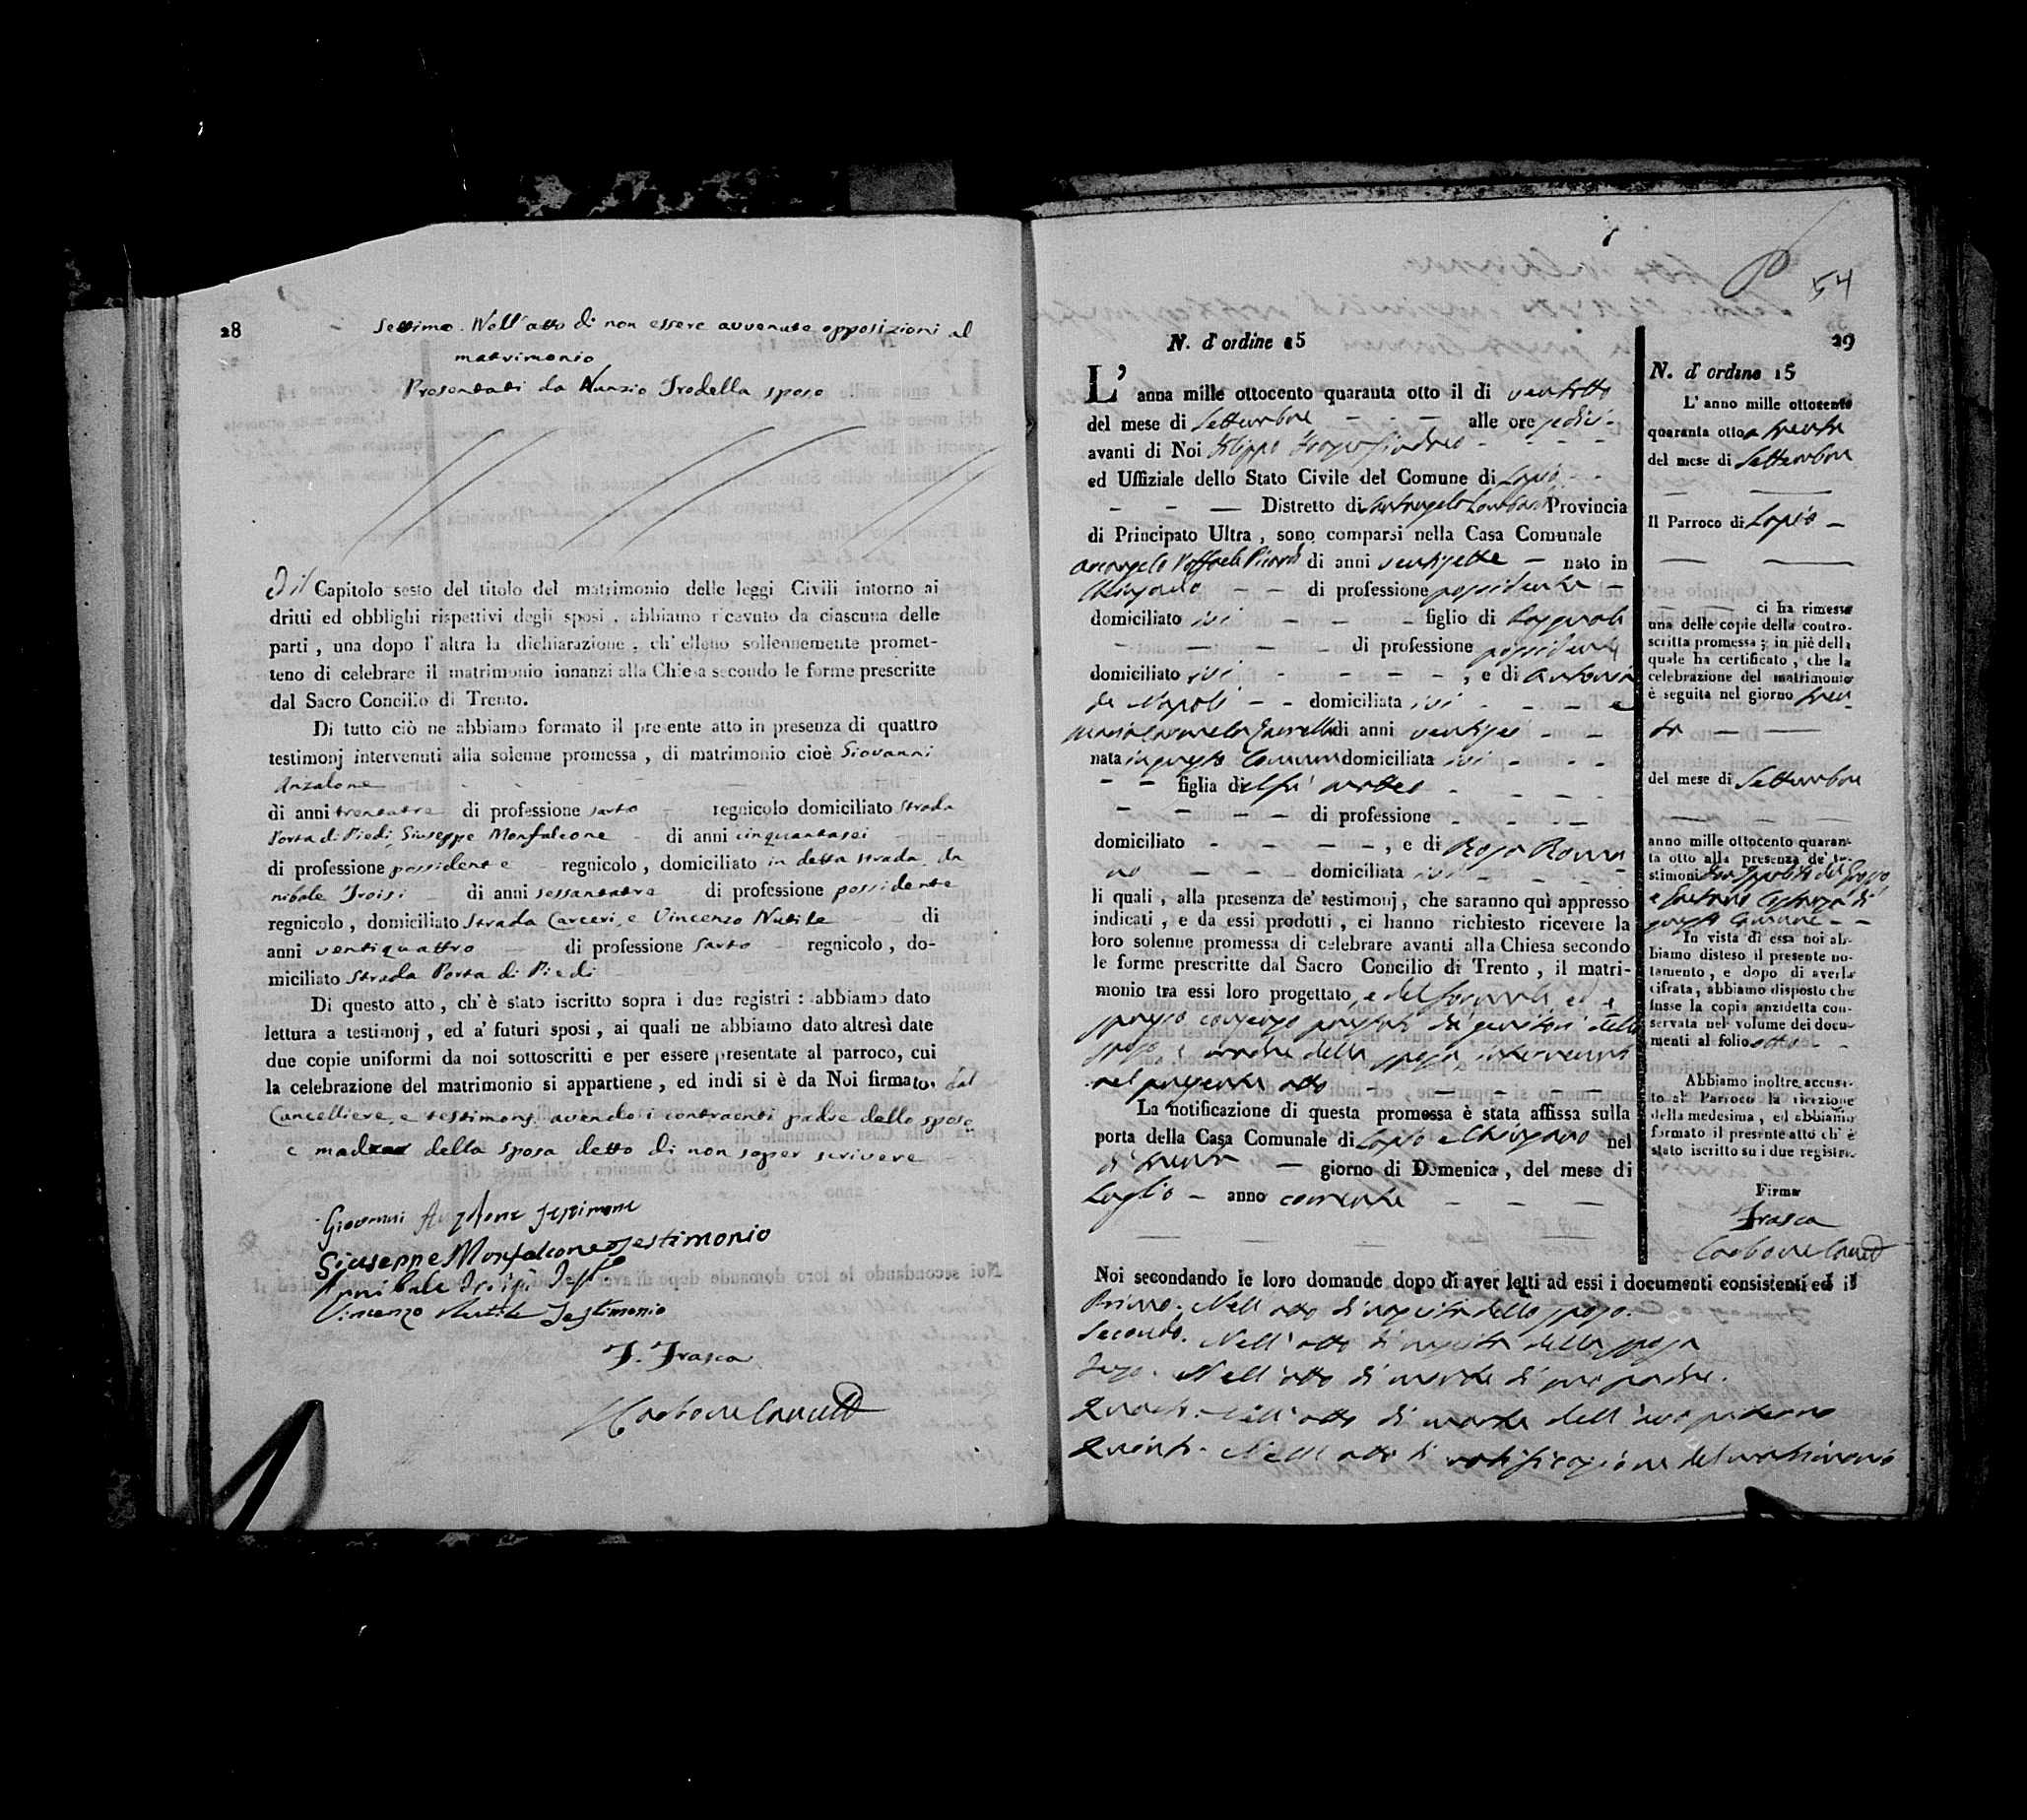 28
Settimo. Nell'atto di non essere avvenute opposizioni al
matrimonio
Presentati da Nunzio Trodella sposo
Ed il Capitolo sesto del titolo del matrimonio delle leggi Civili intorno ai
dritti ed obblighi rispettivi degli sposi, abbiamo ricevuto da ciascuna delle
parti, una dopo l'altra la dichiarazione, ch'elleno sollennemente promet-
teno di celebrare il matrimonio innanzi alla Chiesa secondo le forme prescritte
dal Sacro Concilio di Trento.
Di tutto ciò ne abbiamo formato il presente atto in presenza di quattro
testimonj intervenuti alla solenne promessa, di matrimonio cioè Giovanni
Anzalone
di anni trentatre di professione sarto regnicolo domiciliato strada
Porta di Piedi, Giuseppe Monfalcone di anni cinquantasei
di professione possidente regnicolo, domiciliato in detta strada,
nibale Troisi di anni sessantatre di professione possidente
regnicolo, domiciliato Strada Carceri, e Vincenzo Nutile di
anni ventiquattro di professione sarto regnicolo, do-
miciliato Strada Porta di Piedi
Di questo atto, ch'è stato iscritto sopra i due registri: abbiamo dato
lettura a testimonj, ed a' futuri sposi, ai quali ne abbiamo dato altresì date
due copie uniformi da noi sottoscritti e per essere presentate al parroco, cui
la celebrazione del matrimonio si appartiene, ed indi si è da Noi firmato, dal
Cancelliere, e testimonj avendo i contraenti padre dello sposo
e madre della sposa detto di non saper scrivere
Giovanni Anzalone testimone
Giuseppe Monfalcone Testimonio
Annibale Troisi
Vincenzo Nutile Testimonio
F. Frasca
Carbone
54
29
N. d'ordine 15
L'anna mille ottocento quaranta otto il di ventotto
del mese di Settembre alle ore sedici
avanti di Noi Filippo
ed Uffiziale dello Stato Civile del Comune di Lapio
Distretto di Santangelo Lombardi Provincia
di Principato Ultra, sono comparsi nella Casa Comunale
Arcangelo Raffaele di anni ventisette nato in
di professione possidente
domiciliato ivi figlio di Pasquale
di professione possidente
domiciliato ivi, e di Antonia
de Napoli domiciliata ivi e
Maria Carmela di anni ventisei
nata in questo Comune domiciliata ivi
figlia del fu Matteo
di professione
domiciliato, e di Rosa Roma
no domiciliata ivi
li quali, alla presenza de' testimonj, che saranno qui appresso
indicati, e da essi prodotti, ci hanno richiesto ricevere la
loro solenne promessa di celebrare avanti alla Chiesa secondo
le forme prescritte dal Sacro Concilio di Trento, il matri-
monio tra essi loro progettato, e del formale, ed e
spresso consenso prestato da' genitori dello
sposo e madre della sposa intervenuti
nel presente atto
La notificazione di questa promessa è stata affissa sulla
porta della Casa Comunale di Lapio e nel
di trenta giorno di Domenica, del mese di
Luglio anno corrente
Noi secondando le loro domande dopo di aver letti ad essi i documenti consistenti ed il
Primo. Nell'atto di nascita dello sposo.
Secondo. Nell'atto di nascita della sposa
Terzo. Nell'atto di morte di suo padre.
Quarto. Nell'atto di morte dell'avo paterno
Quinto. Nell'atto di notificazione del matrimonio
N. d'ordine 15
L'anno mille ottocento
quaranta otto a trenta
del mese di Settembre
Il Parroco di Lapio
ci ha rimesse
una delle copie della contro-
scritta promessa; in piè della
quale ha certificato, che la
celebrazione del matrimonio
è seguita nel giorno tren
ta
del mese di Settembre
anno mille ottocento quaran-
ta otto alla presenza de' te-
stimoni
e Gaetano Costanza di
questo Comune
In vista di essa noi ab-
biamo disteso il presente no-
tamento, e dopo di averla
cifrata, abbiamo disposto che
fusse la copia anzidetta con-
servata nel volume dei docu-
menti al folio otto
Abbiamo inoltre accusa-
to al Parroco la ricezione
della medesima, ed abbiamo
formato il presente atto ch'è
stato iscritto su i due registri.
Firma
Frasca
Carbone